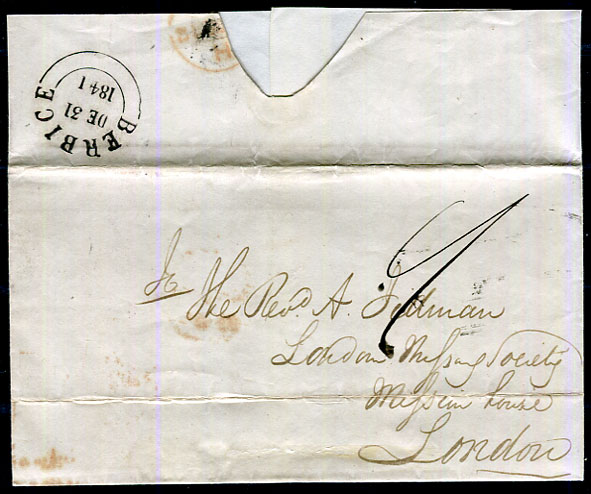 BERBICE
DE 31
1841
To The Revd. A. Tidman
London Missny Society
Mission house
London